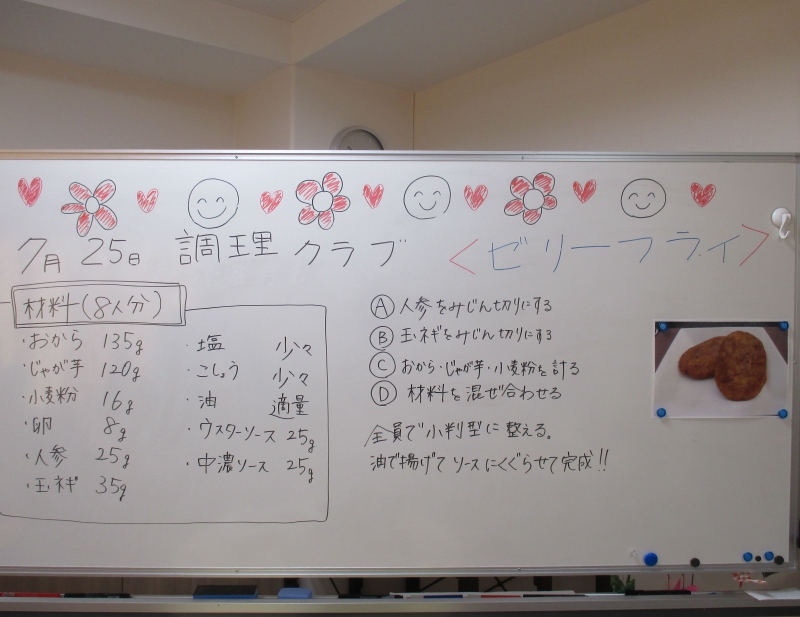 7月25日 調理クラブ <ゼリーフライ>
材料(8人分)
・おから 135g
・じゃが芋 120g
・小麦粉 16g
・卵 8g
・人参 25g
・玉ネギ 35g
・塩 少々
・こしょう 少々
・油 適量
・ウスターソース 25g
・中濃ソース 25g
Ⓐ 人参をみじん切りにする
Ⓑ 玉ネギをみじん切りにする
Ⓒ おから・じゃが芋・小麦粉を計る
Ⓓ 材料を混ぜ合わせる
全員で小判型に整える。
油で揚げてソースにくぐらせて完成!!